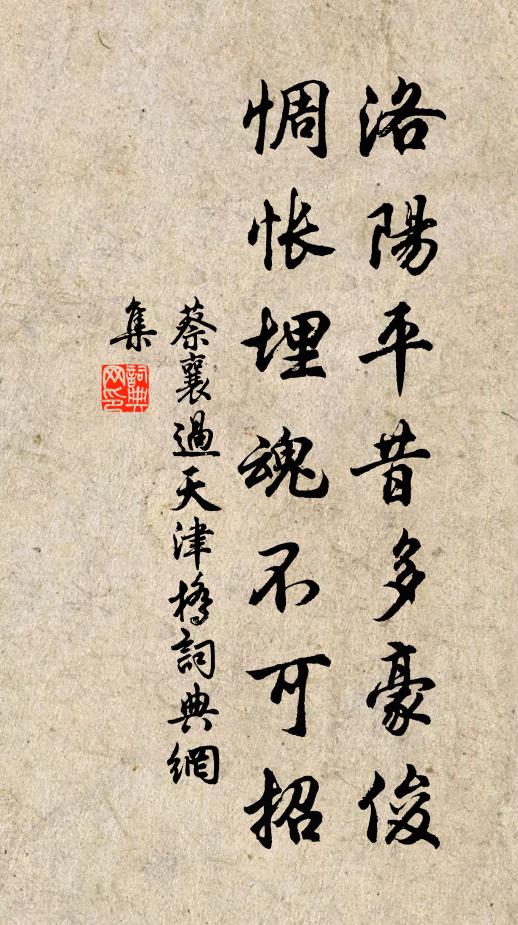 洛陽平昔多豪俊
惆怅埋魂不可招
蔡襄過天津橋詞典網
集
詞典
网印